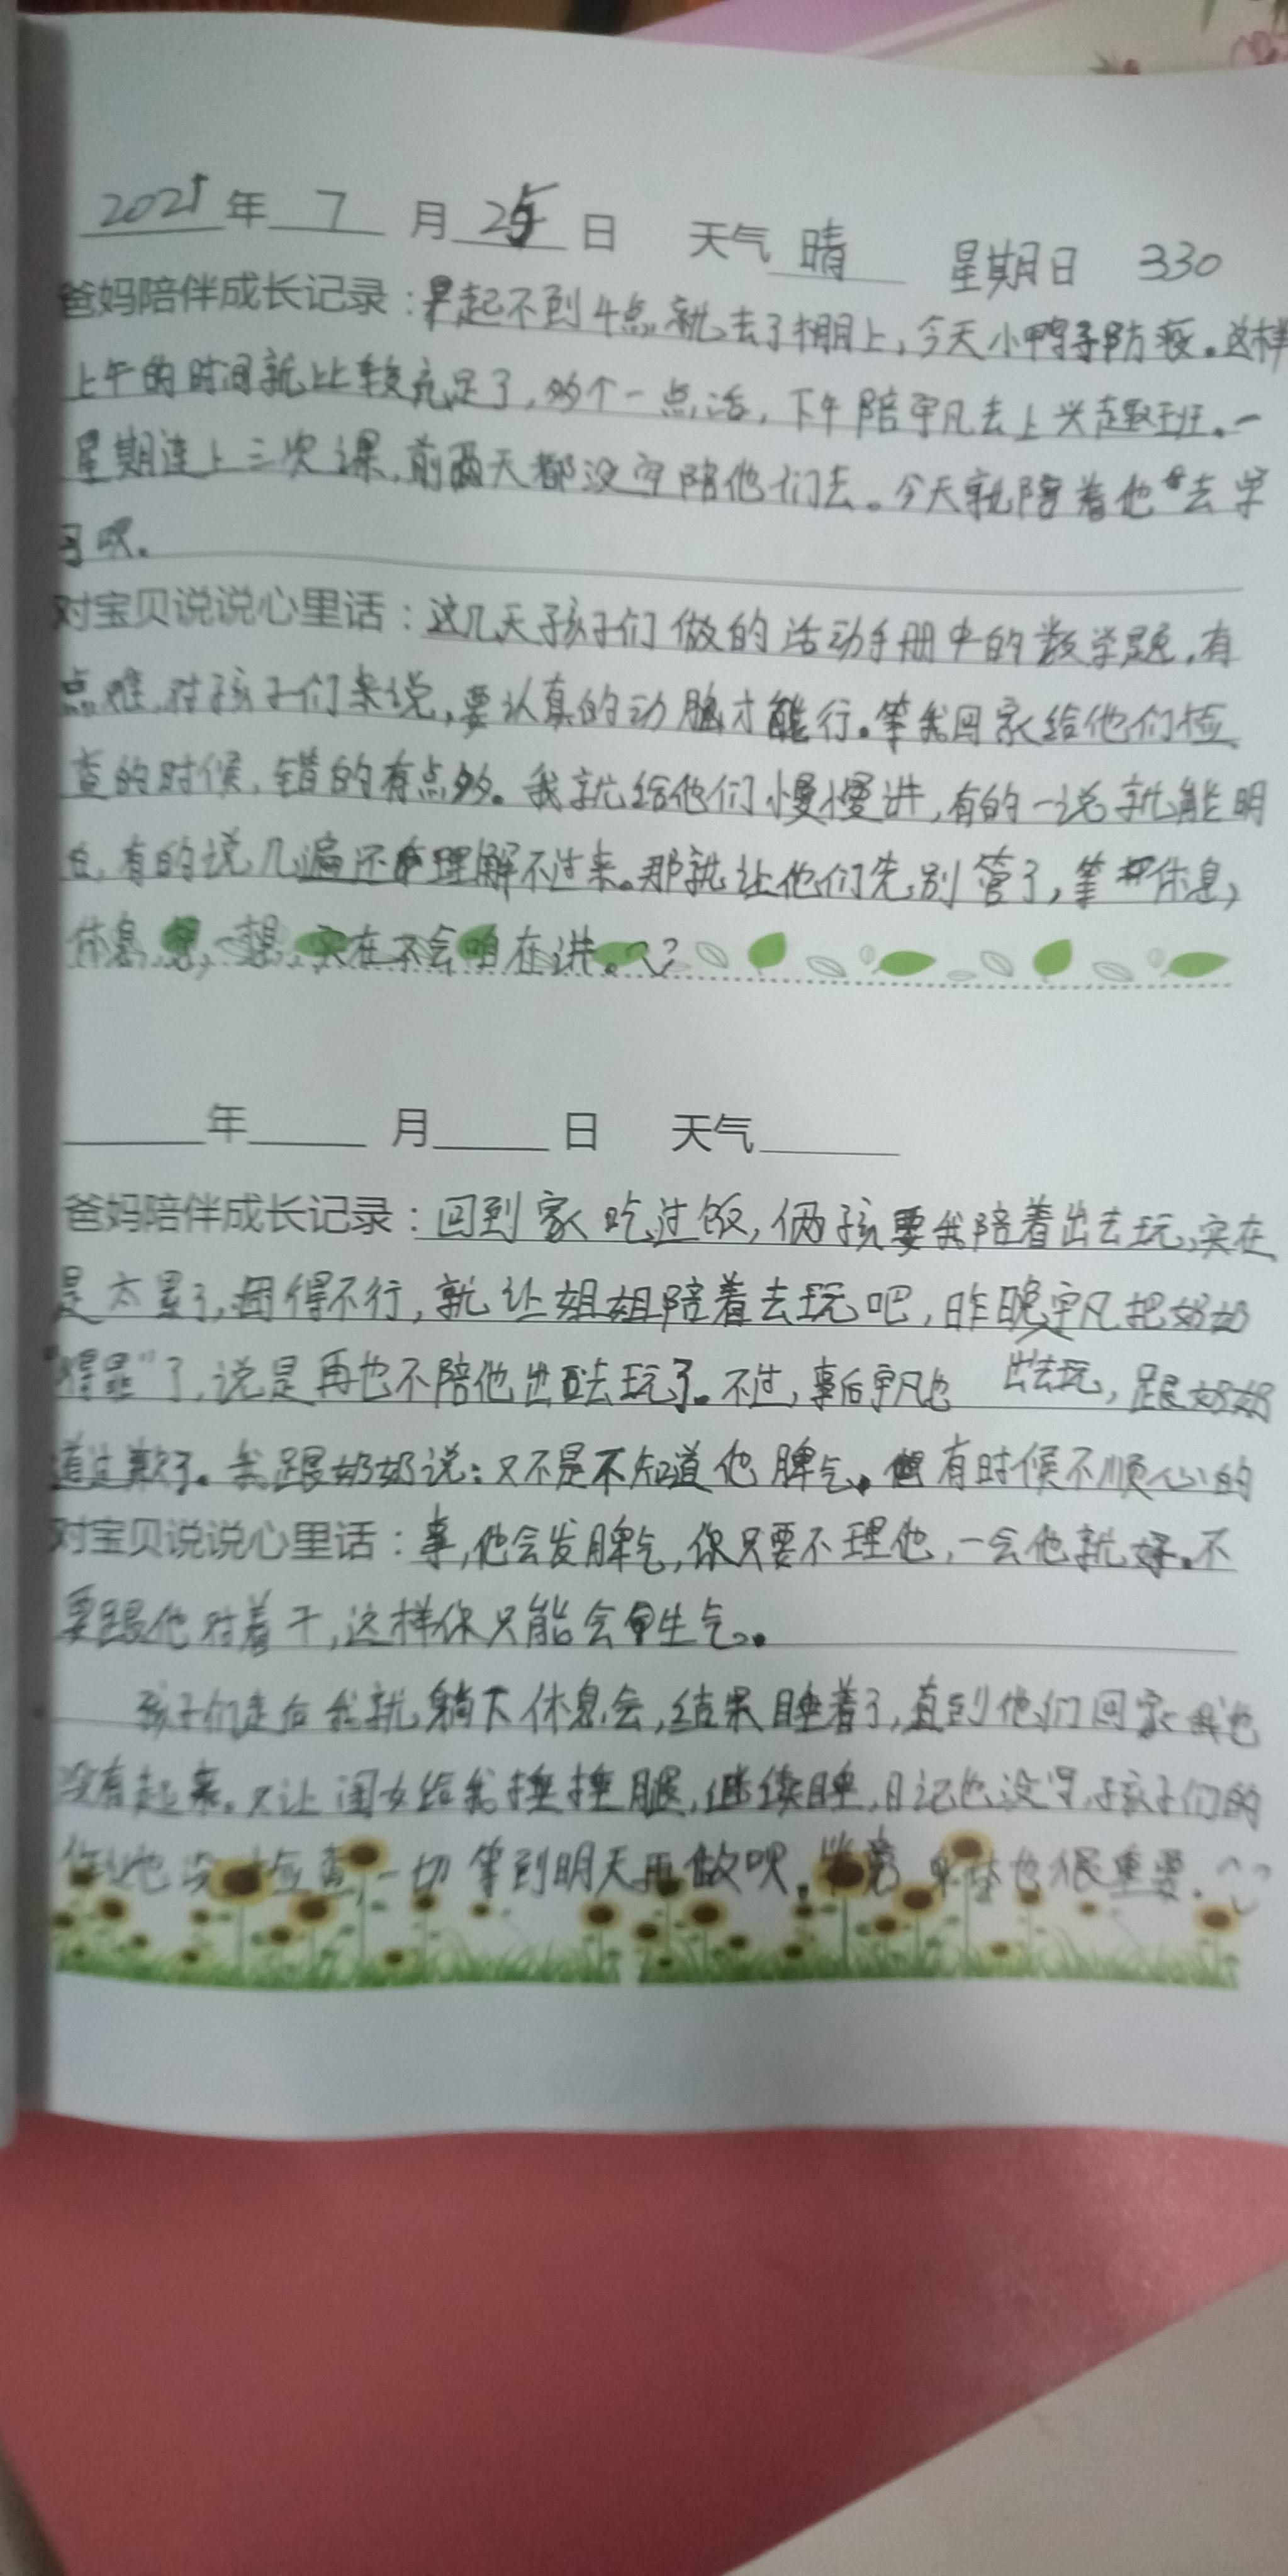 2021年 7 月 25 日 天气 晴 星期日 330
爸妈陪伴成长记录：早起不到4点就去了棚上，今天小鸭子防疫。这样
上午的时间就比较充足了，多个一点活，下午陪宇凡去上兴趣班。一
星期连上三次课，前两天都没空陪他们去。今天就陪着他去学
习呗。
对宝贝说说心里话：这几天孩子们做的活动手册中的数学题，有
点难，对孩子们来说，要认真的动脑才能行。等我回家给他们检
查的时候，错的有点多。我就给他们慢慢讲，有的一说就能明
白，有的说几遍还理解不过来。那就让他们先别管了，休息，
休息，想一想，实在不会咱在讲。
年 月 日 天气
爸妈陪伴成长记录：回到家吃过饭，俩孩要我陪着出去玩，实在
是太累了，困得不行，就让姐姐陪着去玩吧，昨晚宇凡把奶奶
“得罪”了，说是再也不陪他出去玩了。不过，事后宇凡也 出去玩，跟奶奶
道过歉了。我跟奶奶说：又不是不知道他脾气，有时候不顺心的
对宝贝说说心里话：事，他会发脾气，你只要不理他，一会他就好。不
要跟他对着干，这样你只能会生气。
孩子们走后我就躺下休息会，结果睡着了，直到他们回家我也
没有起来。又让闺女给我捶捶腿，继续睡，日记也没写，孩子们的
作业也没检查，一切等到明天再做呗。身体也很重要。